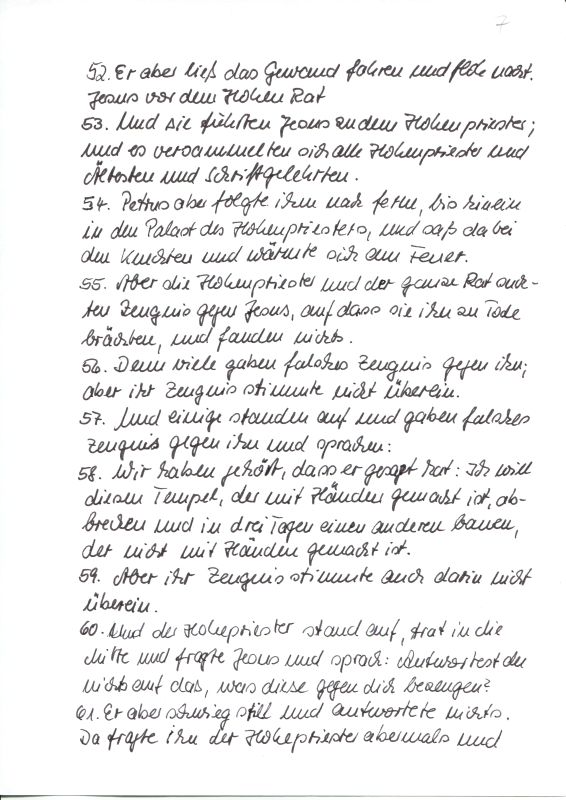 7
52. Er aber ließ das Gewand fahren und floh nackt.
Jesus vor dem Hohen Rat
53. Und sie führten Jesus zu dem Hohenpriester;
und es versammelten sich alle Hohenpriester und
Ältesten und Schriftgelehrten.
54. Petrus aber folgte ihm nach ferne, bis hinein
in den Palast des Hohenpriesters, und saß da bei
den Knechten und wärmte sich am Feuer.
55. Aber die Hohenpriester und der ganze Rat such-
ten Zeugnis gegen Jesus, auf dass sie ihn zu Tode
brächten, und fanden nichts.
56. Denn viele gaben falsches Zeugnis gegen ihn;
aber ihr Zeugnis stimmte nicht überein.
57. Und einige standen auf und gaben falsches
Zeugnis gegen ihn und sprachen:
58. Wir haben gehört, dass er gesagt hat: Ich will
diesen Tempel, der mit Händen gemacht ist, ab-
brechen und in drei Tagen einen anderen bauen,
der nicht mit Händen gemacht ist.
59. Aber ihr Zeugnis stimmte auch darin nicht
überein.
60. Und der Hohepriester stand auf, trat in die
Mitte und fragte Jesus und sprach: Antwortest du
nichts auf das, was diese gegen dich bezeugen?
61. Er aber schwieg still und antwortete nichts.
Da fragte ihn der Hohepriester abermals und